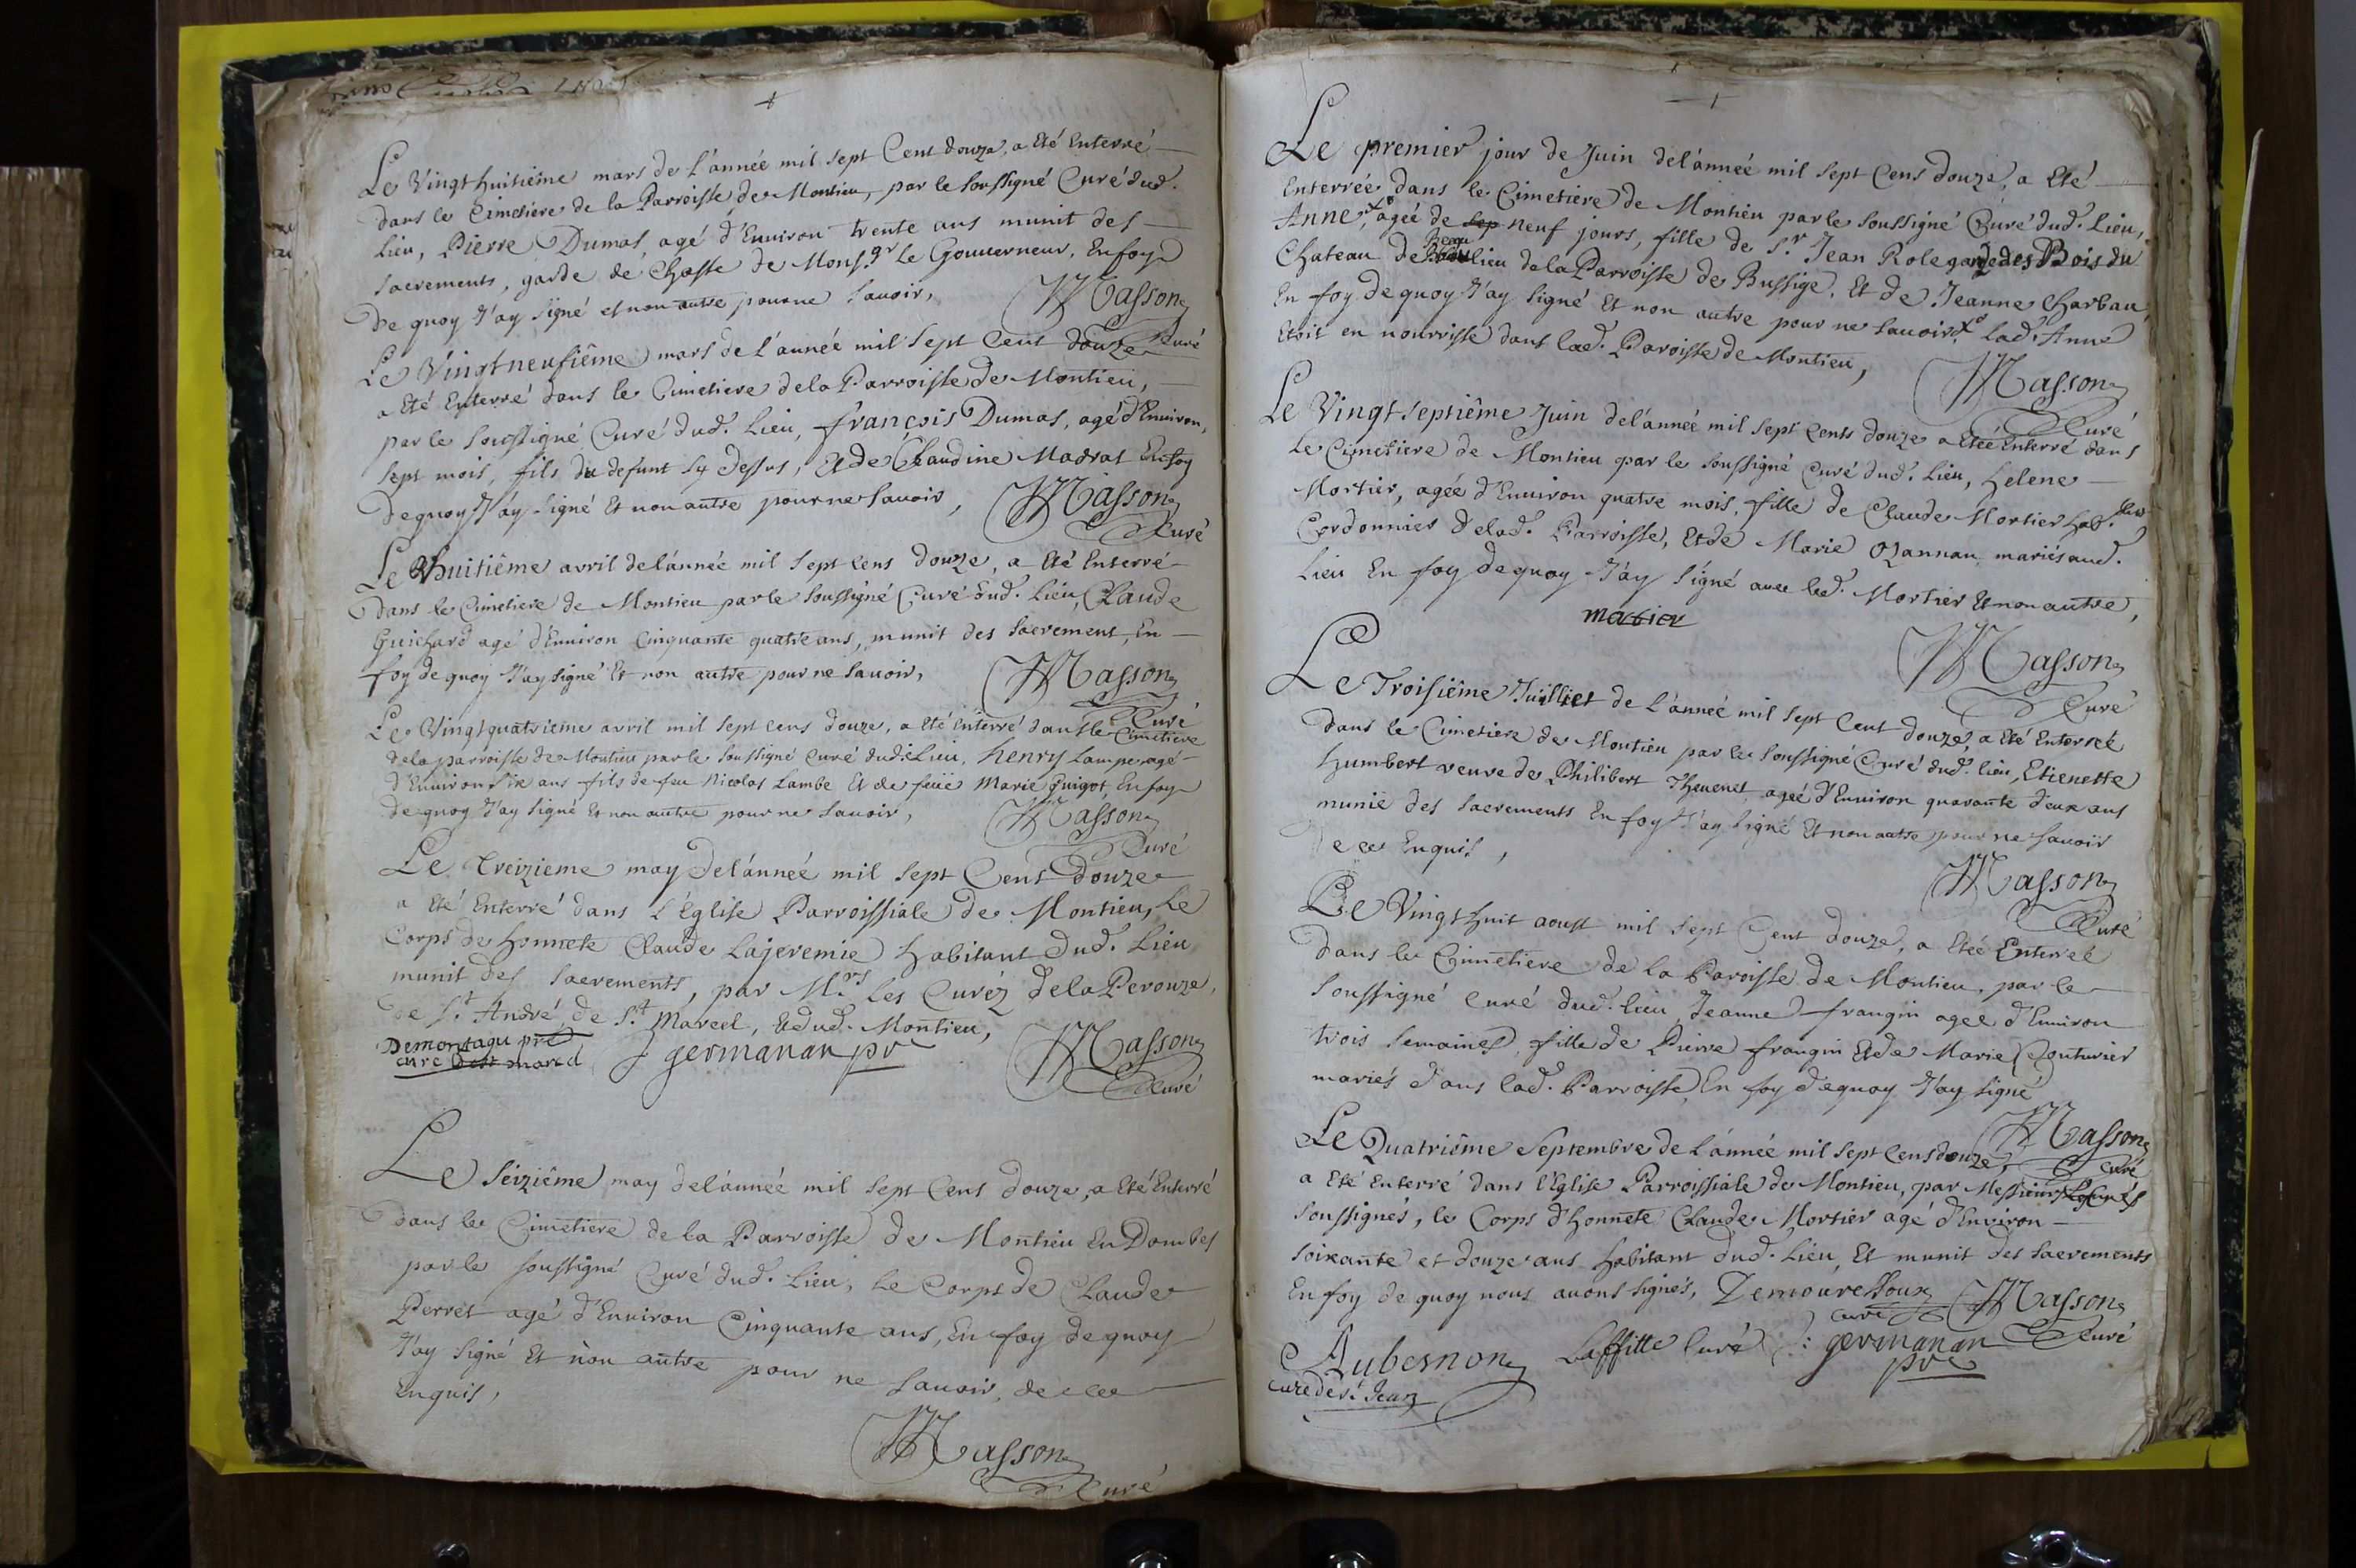 Le Vingt huitiême mars de L'année mil sept Cent douze, a Eté Enterré
dans le Cimetiere de la Parroisse de Montieu, par le soussigné Curé dud.
Lieu, Pierre Dumas, agé d'Enuiron trente ans munit des
sacrements, garde de Chasse de Monsgr le Gouuerneur, En foy
de quoy J'ay signé et non autre pour ne sauoir,
Masson
Curé
Le Vingt neufiême mars de l'année mil sept Cent douze
a Eté Enterré dans le Cimetiere de la Parroisse de Montieu,
par le soussigné Curé dud. Lieu, françois Dumas, agé d'Enuiron,
sept mois, fils du defunt sy dessus, Et de Claudine Madras En foy
de quoy J'ay signé Et non autre pour ne sauoir,
Masson
Curé
Le huitiême avril de l'année mil sept cens douze, a Eté Enterré
dans le Cimetiere de Montieu par le soussigné Curé dud. Lieu, Claude
Guichard agé d'Enuiron Cinquante quatre ans, munit des sacrement, En
foy de quoy J'ay signé Et non autre pour ne sauoir,
Masson
Curé
Le Vingt quatrieme avril mil sept cens douze, a Eté Enterré dans le Cimetiere
de la parroisse de Montieu par le soussigné Curé dud. Lieu, henry Lampe agé
d'Enuiron six ans fils de feu Nicolas Lambe Et de feüe Marie Guigot En foy
de quoy J'ay signé Et non autre pour ne sauoir,
Masson
Curé
Le treizieme may de l'année mil sept Cens douze
a Eté Enterré dans L'Église Parroissiale de Montieu, Le
Corps de honnete Claude Lajeremie habitant dud. Lieu
munit des sacrements, par Mrs les Curéz de la Perouze,
de St André, de St Marcel, Et dud. Montieu,
Demontagu pre
cure de st marcel
J germanan pre
Masson
Curé
Le seiziême may de l'année mil sept Cens douze, a Eté Enterré
dans le Cimetiere de la Parroisse de Montieu En Dombes
par le soussigné Curé dud. Lieu, Le Corps de Claude
Perret agé d'Enuiron Cinquante ans, En foy de quoy
J'ay signé Et non autre pour ne sauoir, de ce
Enquis,
Masson
Curé
Le premier jour de Juin de l'année mil sept Cens douze, a Eté
Enterrée dans le Cimetiere de Montieu par le soussigné Curé dud. Lieu,
Anne, agée de sep neuf jours, fille de sr Jean Role garde des Bois du
Chateau de Beaulieu de la Parroisse de Bussige, Et de Jeanne Charbau,
En foy de quoy J'ay signé Et non autre pour ne sauoir, lad. Anne
Etoit en nourrisse dans lad. Paroisse de Montieu,
Masson
Curé
Le Vingt septiême Juin de l'année mil sept Cents douze a Etéé Enterré dans
Le Cimetiere de Montieu par le soussigné Curé dud. Lieu, helene
Mortier, agée d'Enuiron quatre mois, fille de Claude Mortier hab.
Cordonnier de lad. Parroisse, Et de Marie Ozannan, mariés aud.
Lieu En foy de quoy J'ay signé auec led. Mortier Et non autre,
mortier
Masson
Curé
Le Troisiême Juilliet de L'année mil sept Cent douze, a Eté Enterrée
dans le Cimetiere de Montieu par le soussigné Curé dud. lieu, Etienette
humbert veuve de Philibert Theuenet, agée d'Enuiron quarante deux ans
munie des sacrements En foy J'ay signé Et non autre pour ne sauoir
de ce Enquis,
Masson
Curé
Le Vingt huit aoust mil sept Cent douze, a Etéé Enterrée
dans le Cimetiere de la Paroisse de Montieu, par le
soussigné curé dud. lieu Jeanne frangin agée d'Enuiron
trois semaines, fille de Pierre frangin Et de Marie Couturier
mariés dans lad. Parroisse, En foy de quoy J'ay signé
Masson
Curé
Le Quatriême Septembre de L'année mil sept Cens douze,
a Eté Enterré dans l'Église Parroissiale de Montieu, par Messieurs les Curés
soussignés, le Corps d'honnete Claude Mortier agé d'Enuiron
soixante et douze ans habitant dud. Lieu, Et munit des sacrements
En foy de quoy nous auons signés,
Demoureloux
curé
Masson
Curé
Aubesnon
curé de st Jean
Laffitte Curé
J: germanan
pre